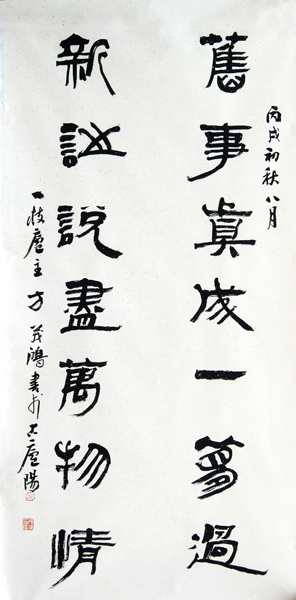 丙戌初秋八月
舊事眞成一夢過
新詩說盡萬物情
一枝廬主方茂鴻書於古廬陽